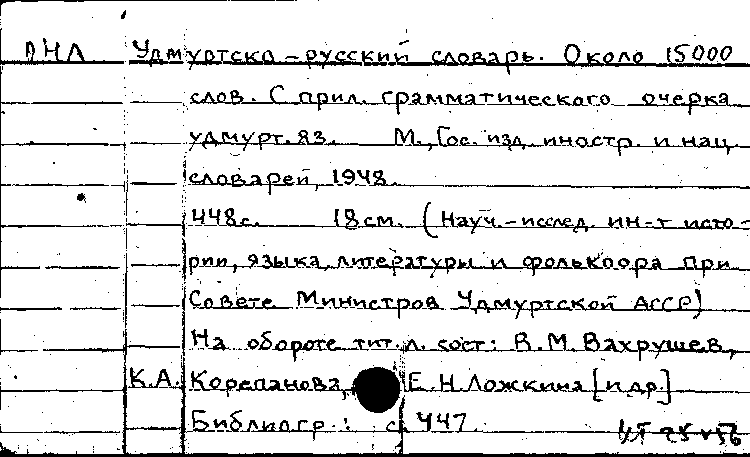 ОНЛ Удмуртско-русский словарь. Около 15000
слов. С прил. грамматического очерка
удмурт. яз. М., Гос. изд. иностр. и нац.
словарей, 1948.
448с. 18см. (Науч.-исслед. ин-т исто-
рии, языка, литературы и фольклора при
Совете Министров Удмуртской АССР)
На обороте тит. л. сост: В.М. Вахрушев,
К.А. Корепанова, Е.Н. Ложкина [и др.]
Библиогр.: с. 447